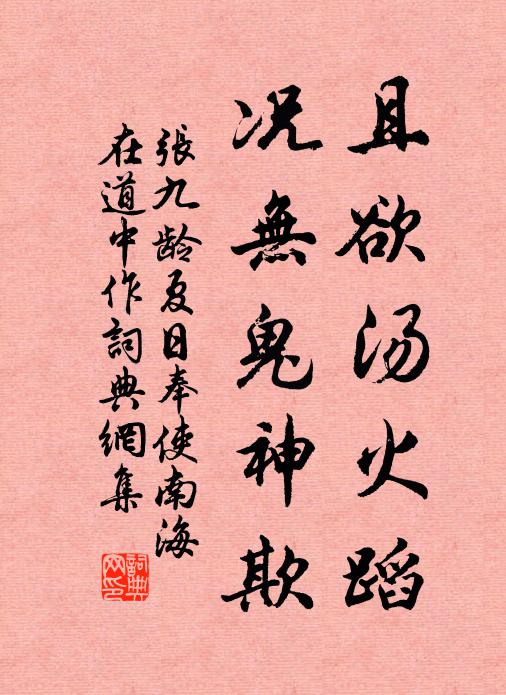 且欲汤火蹈
况無鬼神欺
張九龄夏日奉使南海
在道中作詞典網集
詞典网印